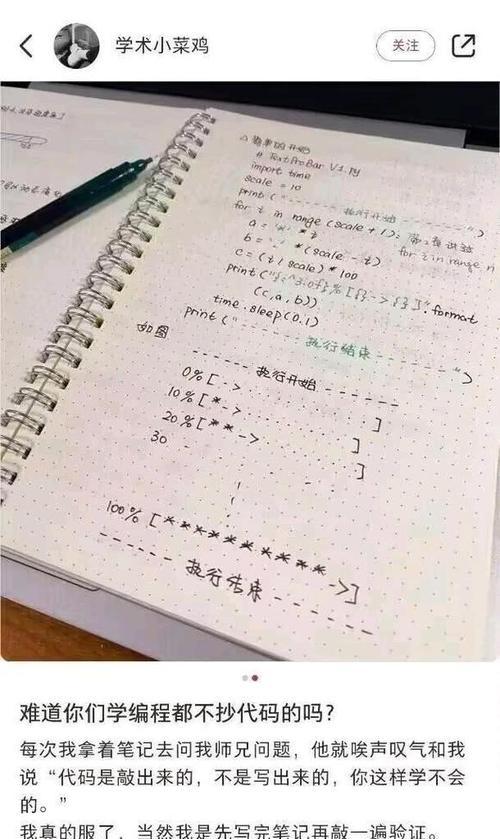 学术小菜鸡
关注
△ 简单的开始
# TextProBar V1.py
import time
scale = 10
print("------执行开始------")
for i in range (scale + 1):
for i in range n
a = '*' * i
b = '.' * (scale - i)
c = (i / scale) * 100
print("{:^3.0f}%[{}->{}]".format
(c, a, b))
time.sleep(0.1)
print("------执行结束------")
如图
------执行开始------
0%[->..........]
10%[*->.........]
20%[**->........]
30
100%[**********->]
------执行结束------
难道你们学编程都不抄代码的吗?
每次我拿着笔记去问我师兄问题，他就唉声叹气和我
说“代码是敲出来的，不是写出来的，你这样学不会
的。”
我真的服了，当然我是先写完笔记再敲一遍验证。